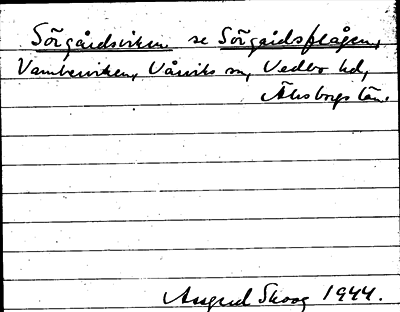 Sörgårdsviken se Sörgårdsflågen,
Vambeviken, Vårviks sn, Vedbo hd,
Älvsborgs län.
Assgrud Skoog 1944.